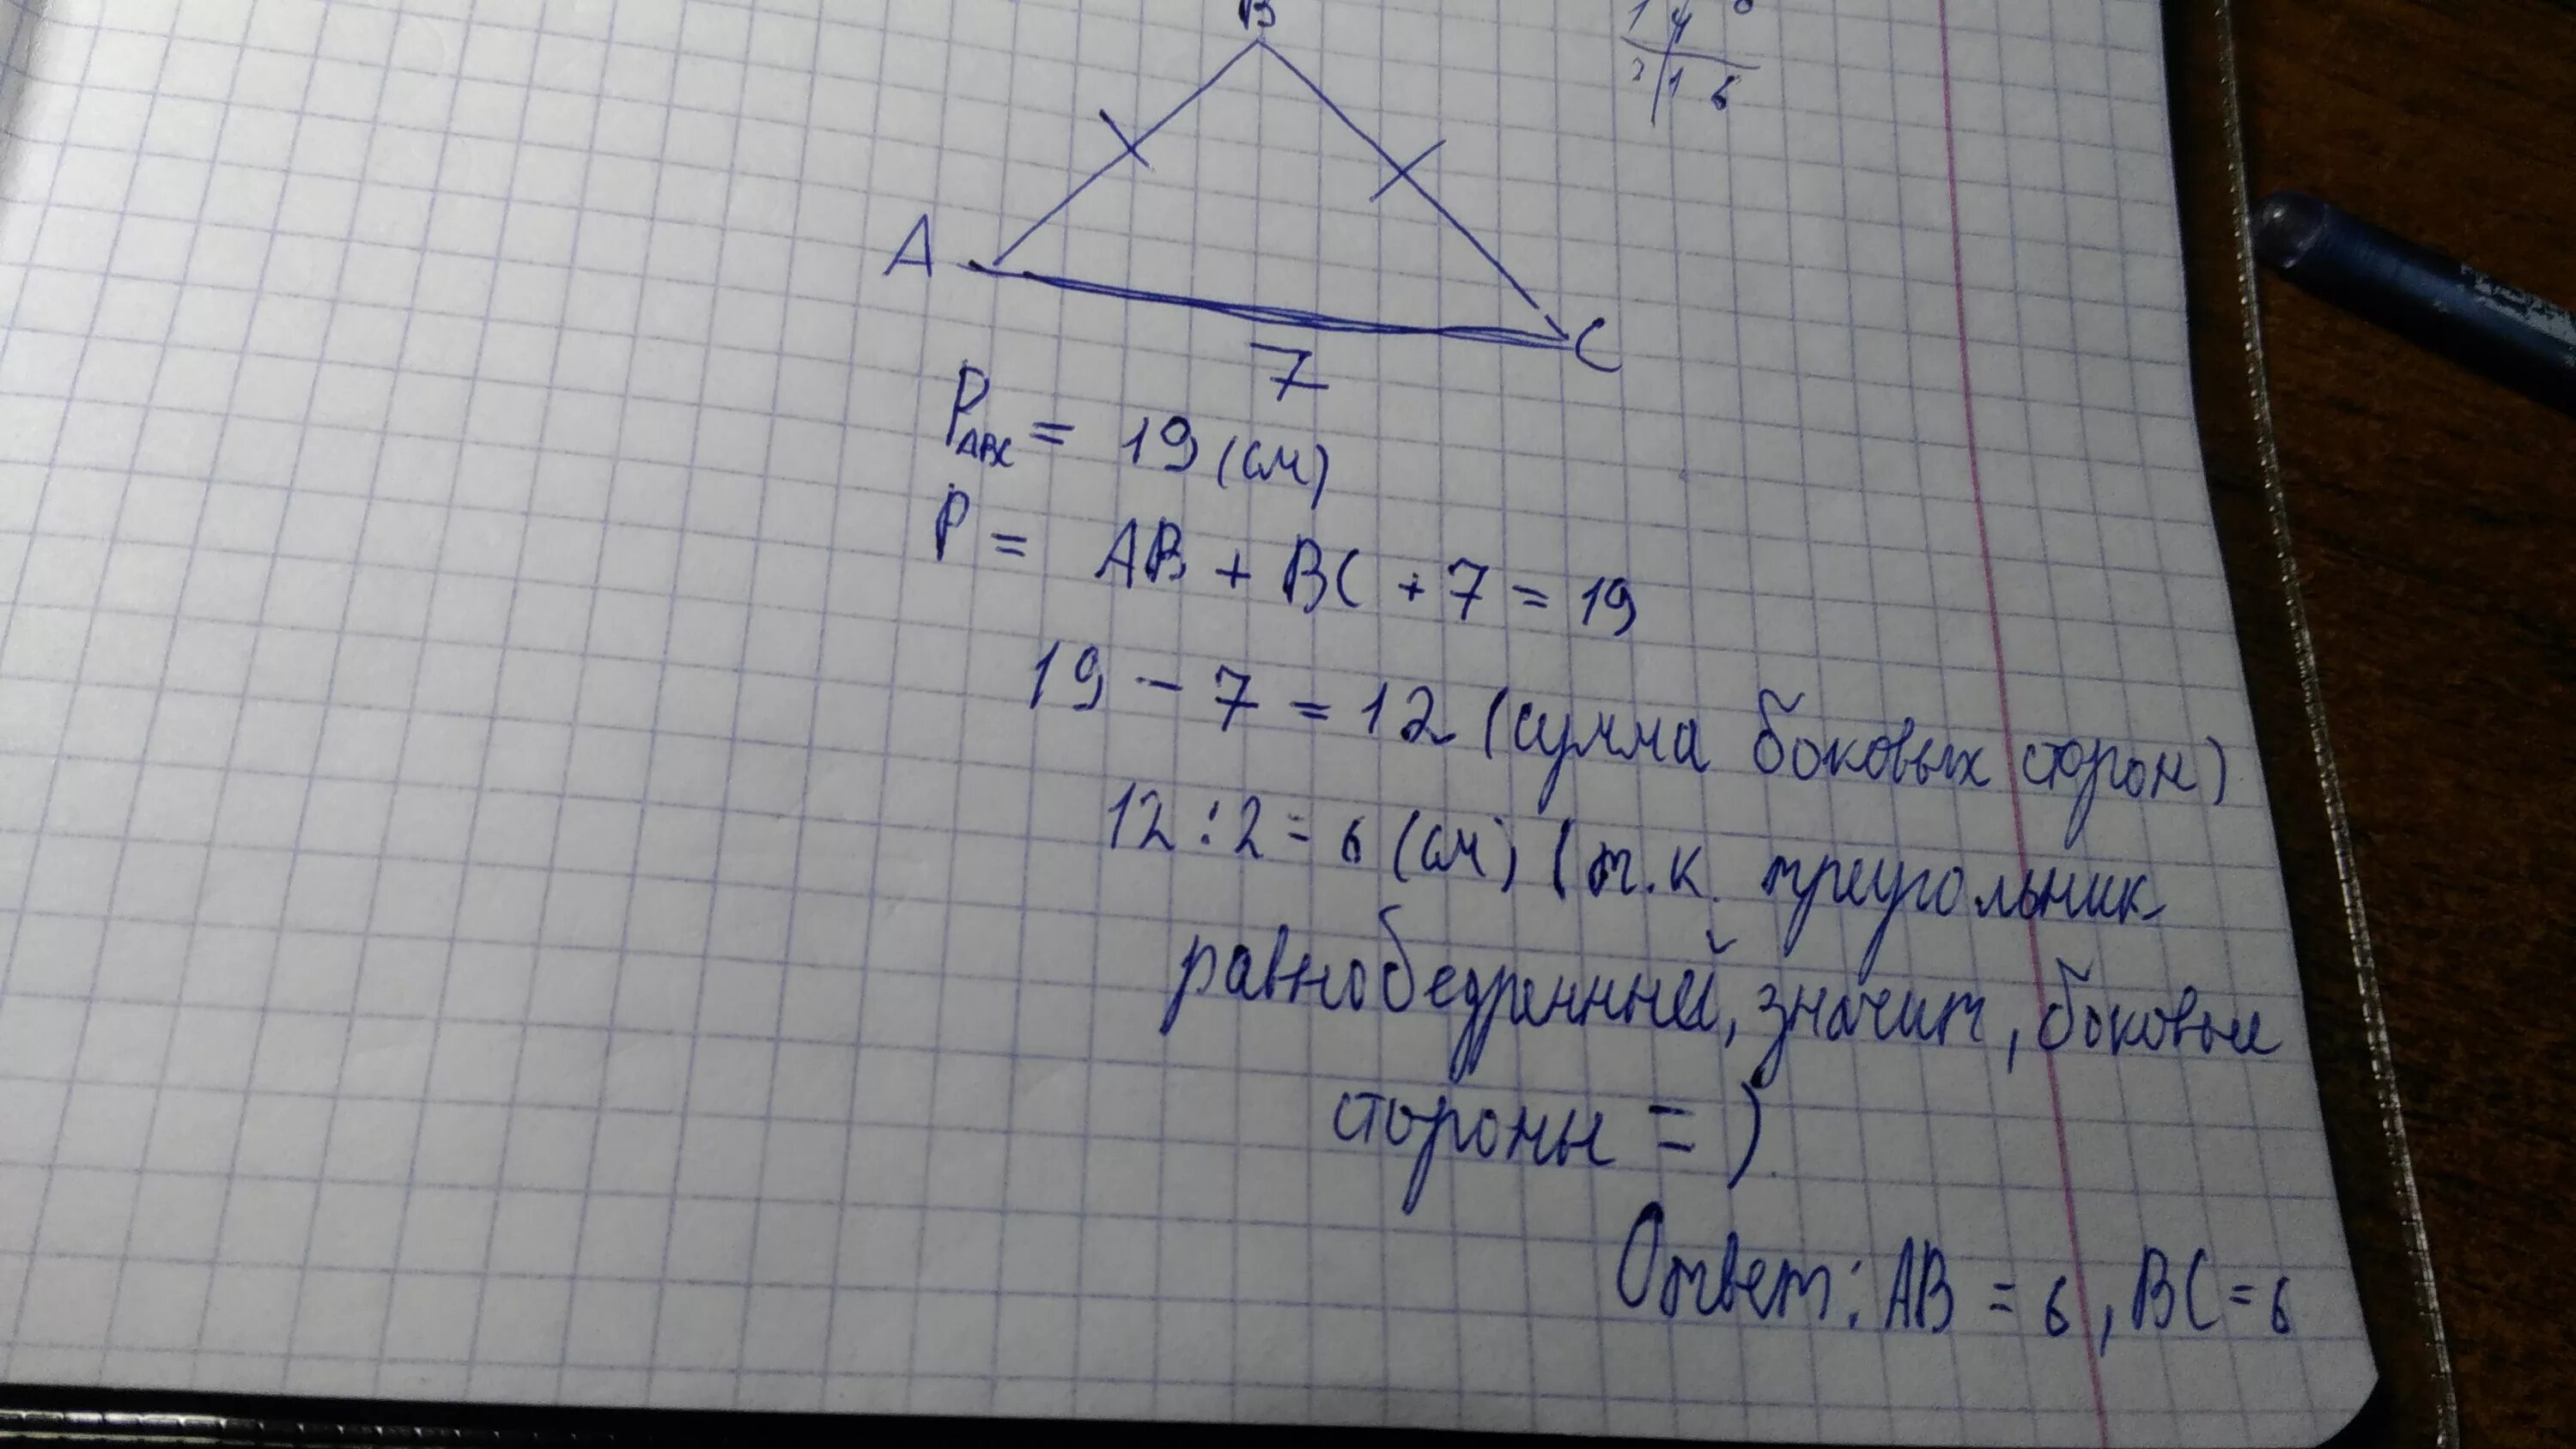 B
1 4
2 1 6
A
C
7
P ABC = 19 (см)
P = AB + BC + 7 = 19
19 - 7 = 12 (сумма боковых сторон)
12 : 2 = 6 (см) (т.к. треугольник
равнобедренный, значит, боковые
стороны = )
Ответ: AB = 6, BC = 6